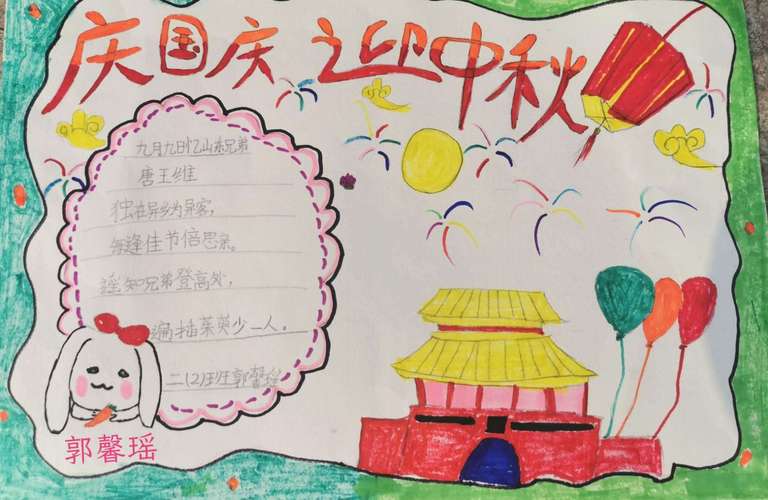 庆国庆 迎中秋
九月九日忆山东兄弟
唐王维
独在异乡为异客，
每逢佳节倍思亲。
遥知兄弟登高处，
遍插茱萸少一人。
二(2)班郭馨瑶
郭馨瑶